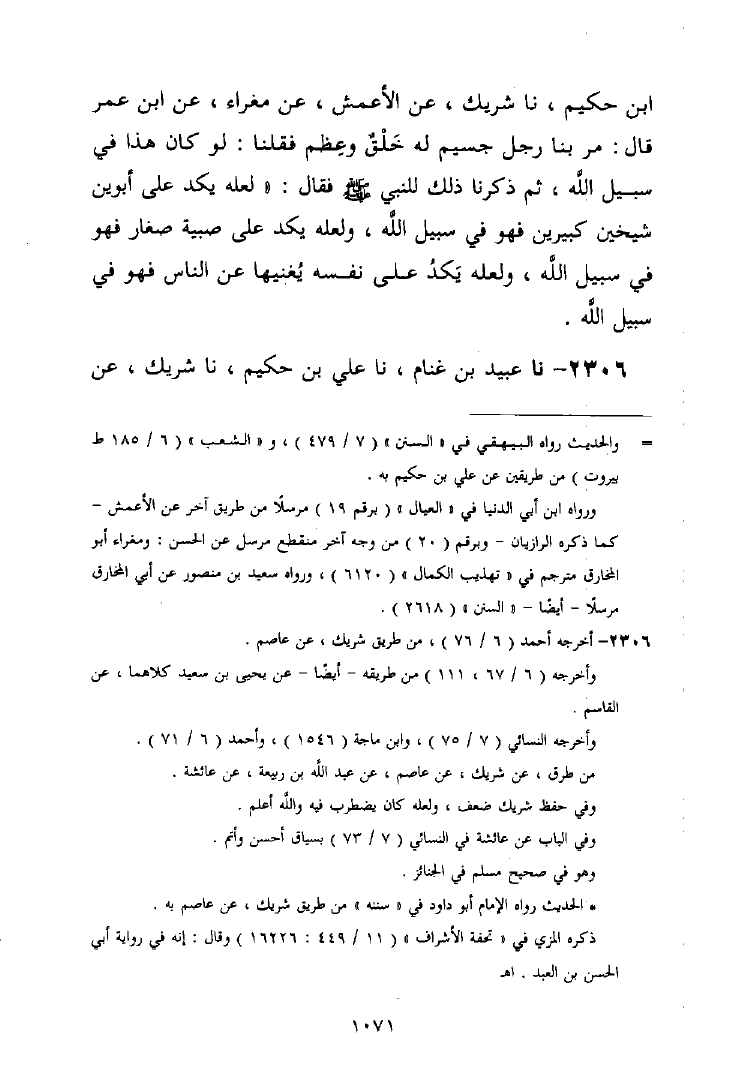 ابن حكيم ، نا شريك ، عن الأعمش ، عن مغراء ، عن ابن عمر
قال : مر بنا رجل جسيم له خَلْقٌ وعِظم فقلنا : لو كان هذا في
سبيل اللَّه ، ثم ذكرنا ذلك للنبي ﷺ فقال : « لعله يكد على أبوين
شيخين كبيرين فهو في سبيل اللَّه ، ولعله يكد على صبية صغار فهو
في سبيل اللَّه ، ولعله يَكدُ على نفسه يُغنيها عن الناس فهو في
سبيل اللَّه .
٢٣٠٦- نا عبيد بن غنام ، نا علي بن حكيم ، نا شريك ، عن
= والحديث رواه البيهقي في « السنن » ( ٧ / ٤٧٩ ) ، و « الشعب » ( ٦ / ١٨٥ ط
بيروت ) من طريقين عن علي بن حكيم به .
ورواه ابن أبي الدنيا في « العيال » ( برقم ١٩ ) مرسلًا من طريق آخر عن الأعمش -
كما ذكره الرازيان - وبرقم ( ٢٠ ) من وجه آخر منقطع مرسل عن الحسن : ومغراء أبو
المخارق مترجم في « تهذيب الكمال » ( ٦١٢٠ ) ، ورواه سعيد بن منصور عن أبي المخارق
مرسلًا - أيضًا - « السنن » ( ٢٦١٨ ) .
٢٣٠٦- أخرجه أحمد ( ٦ / ٧٦ ) ، من طريق شريك ، عن عاصم .
وأخرجه ( ٦ / ٦٧ ، ١١١ ) من طريقه - أيضًا - عن يحيى بن سعيد كلاهما ، عن
القاسم .
وأخرجه النسائي ( ٧ / ٧٥ ) ، وابن ماجة ( ١٥٤٦ ) ، وأحمد ( ٦ / ٧١ ) .
من طرق ، عن شريك ، عن عاصم ، عن عبد اللَّه بن ربيعة ، عن عائشة .
وفي حفظ شريك ضعف ، ولعله كان يضطرب فيه واللَّه أعلم .
وفي الباب عن عائشة في النسائي ( ٧ / ٧٣ ) بسياق أحسن وأتم .
وهو في صحيح مسلم في الجنائز .
* الحديث رواه الإمام أبو داود في « سننه » من طريق شريك ، عن عاصم به .
ذكره المزي في « تحفة الأشراف » ( ١١ / ٤٤٩ : ١٦٢٢٦ ) وقال : إنه في رواية أبي
الحسن بن العبد . اهـ
١٠٧١